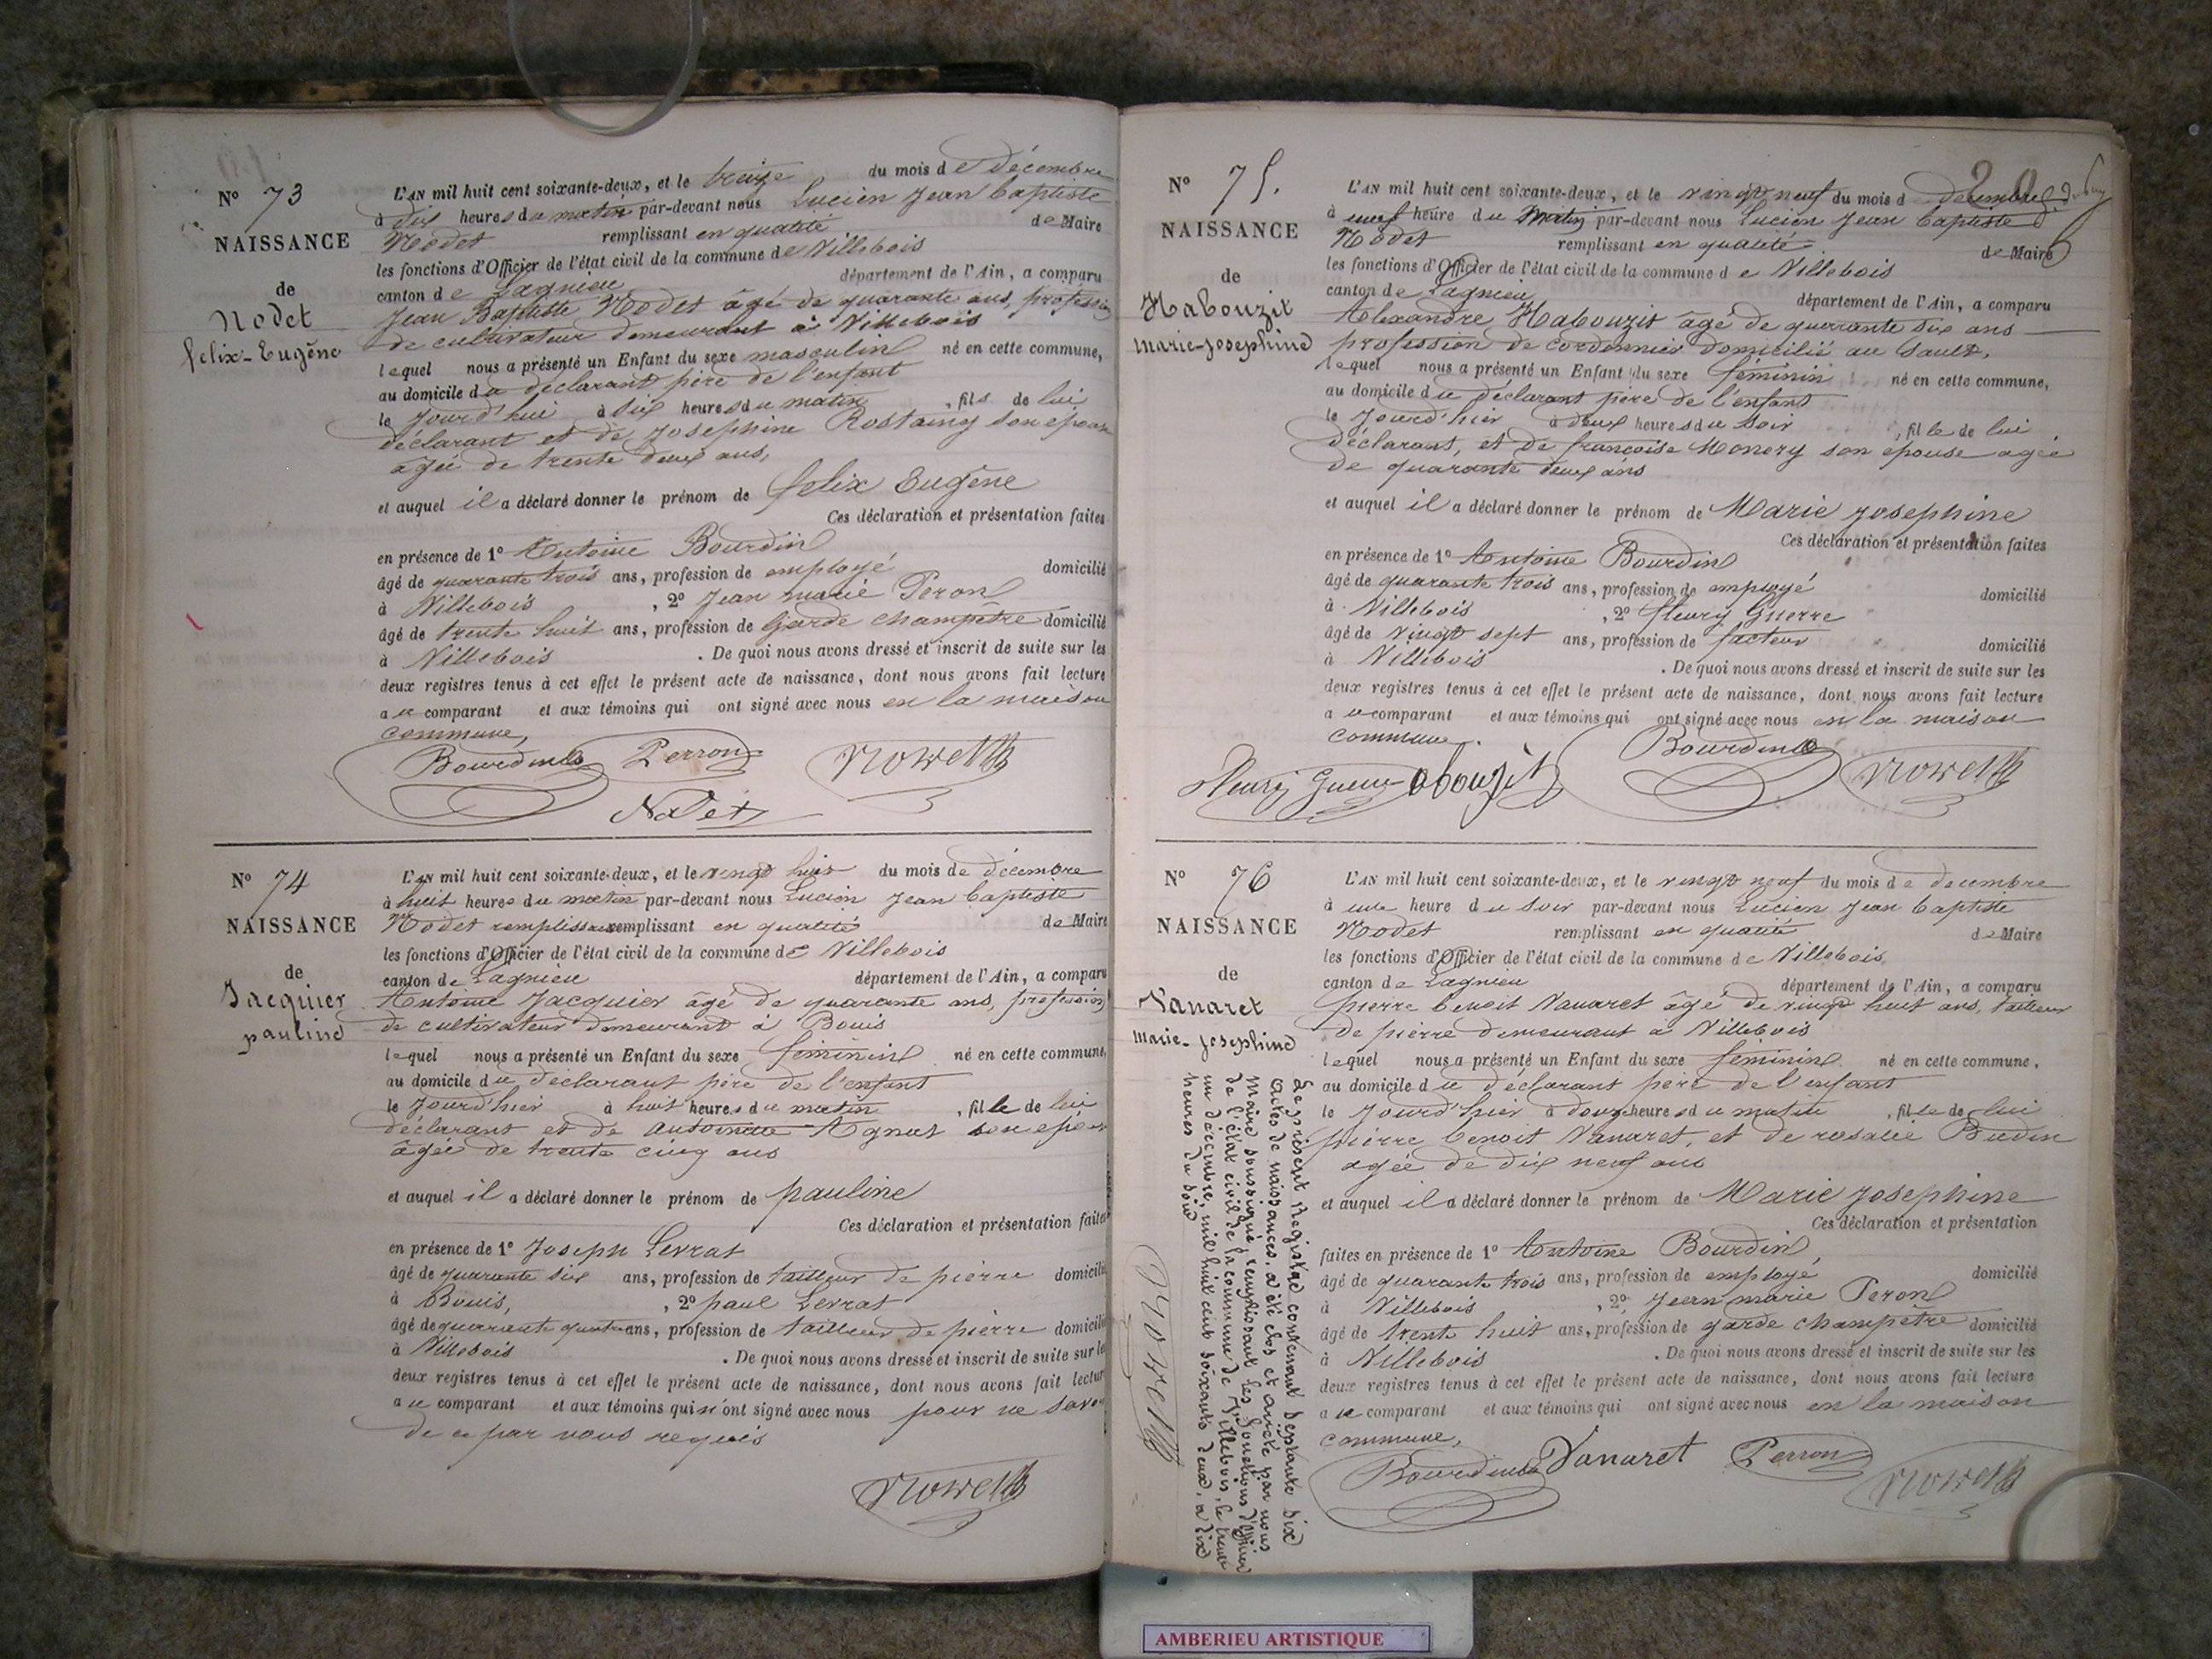 N° 73
NAISSANCE
de
Nodet
felix-Eugène
L'AN mil huit cent soixante-deux, et le treize du mois de décembre
à dix heures du matin par-devant nous Lucien Jean baptiste
Nodet remplissant en qualité de Maire
les fonctions d'Officier de l'état civil de la commune de Villebois
canton de Lagnieu département de l'Ain, a comparu
Jean Baptiste Nodet âgé de quarante ans, profession
de cultivateur demeurant à Villebois
lequel nous a présenté un Enfant du sexe masculin né en cette commune,
au domicile du déclarant père de l'enfant
le jourd'hui à six heures du matin, fils de lui
déclarant et de Josephine Rostaing son épouse
âgée de trente deux ans,
et auquel il a déclaré donner le prénom de felix Eugène
Ces déclaration et présentation faites
en présence de 1° Antoine Bourdin
âgé de quarante trois ans, profession de employé domicilié
à Villebois, 2° Jean marie Peron
âgé de trente huit ans, profession de garde champêtre domicilié
à Villebois. De quoi nous avons dressé et inscrit de suite sur les
deux registres tenus à cet effet le présent acte de naissance, dont nous avons fait lecture
au comparant et aux témoins qui ont signé avec nous en la maison
commune,
Bourdin Perron
Nodet
N° 74
NAISSANCE
de
Jacquier
pauline
L'AN mil huit cent soixante-deux, et le vingt huit du mois de décembre
à huit heures du matin par-devant nous Lucien Jean baptiste
Nodet remplissant en qualité de Maire
les fonctions d'Officier de l'état civil de la commune de Villebois
canton de Lagnieu département de l'Ain, a comparu
Antoine Jacquier âgé de quarante ans, profession
de cultivateur demeurant à Bouis
lequel nous a présenté un Enfant du sexe féminin né en cette commune,
au domicile du déclarant père de l'enfant
le jourd'hier à huit heures du matin, fille de lui
déclarant et de antoinette son
âgée de trente cinq ans
et auquel il a déclaré donner le prénom de pauline
Ces déclaration et présentation faites
en présence de 1° Joseph Levrat
âgé de quarante six ans, profession de tailleur de pierre domicilié
à Bouis, 2° paul Levrat
âgé de quarante quatre ans, profession de tailleur de pierre domicilié
à Villebois. De quoi nous avons dressé et inscrit de suite sur les
deux registres tenus à cet effet le présent acte de naissance, dont nous avons fait lecture
au comparant et aux témoins qui n'ont signé avec nous pour ne savoir
de ce par nous requis
20
N° 75.
NAISSANCE
de
Habouzit
marie-josephine
L'AN mil huit cent soixante-deux, et le vingt neuf du mois de décembre
à heure du matin par-devant nous Lucien Jean baptiste
Nodet remplissant en qualité de Maire
les fonctions d'Officier de l'état civil de la commune de Villebois
canton de Lagnieu département de l'Ain, a comparu
Alexandre Habouzit âgé de quarante six ans
profession de cordonnier domicilié au Sault,
lequel nous a présenté un Enfant du sexe féminin né en cette commune,
au domicile du déclarant père de l'enfant
le jourd'hier à deux heures du soir, fille de lui
déclarant, et de françoise Monery son épouse agée
de quarante deux ans
et auquel il a déclaré donner le prénom de Marie josephine
Ces déclaration et présentation faites
en présence de 1° Antoine Bourdin
âgé de quarante trois ans, profession de employé domicilié
à Villebois, 2° fleury Guerre
âgé de vingt sept ans, profession de facteur domicilié
à Villebois. De quoi nous avons dressé et inscrit de suite sur les
deux registres tenus à cet effet le présent acte de naissance, dont nous avons fait lecture
au comparant et aux témoins qui ont signé avec nous en la maison
commune.
fleury Guerre abouzit Bourdin
N° 76
NAISSANCE
de
Vanaret
marie-josephine
L'AN mil huit cent soixante-deux, et le vingt neuf du mois de decembre
à une heure du soir par-devant nous Lucien Jean baptiste
Nodet remplissant en qualité de Maire
les fonctions d'Officier de l'état civil de la commune de Villebois,
canton de Lagnieu département de l'Ain, a comparu
pierre benoit Vanaret âgé de vingt huit ans, tailleur
de pierre demeurant à Villebois
lequel nous a présenté un Enfant du sexe féminin né en cette commune.
au domicile du déclarant père de l'enfant
le jourd'hier à heures du matin, fille de lui
pierre benoit Vanaret, et de rosalie Budin
agée de dix neuf ans
et auquel il a déclaré donner le prénom de Marie josephine
Ces déclaration et présentation
faites en présence de 1° Antoine Bourdin,
âgé de quarante trois ans, profession de employé domicilié
à Villebois, 2° Jean marie Peron
âgé de trente huit ans, profession de garde champêtre domicilié
à Villebois. De quoi nous avons dressé et inscrit de suite sur les
deux registres tenus à cet effet le présent acte de naissance, dont nous avons fait lecture
au comparant et aux témoins qui ont signé avec nous en la maison
commune,
Bourdin Vanaret Perron
Le présent Registre contenant septante six
actes de naissances, a été clos et arrêté par nous
Maire soussigné, remplissant les fonctions d'officier
de l'état civil de la commune de Villebois, le trente
un décembre, mil huit cent soixante deux, à dix
heures du soir
AMBERIEU ARTISTIQUE